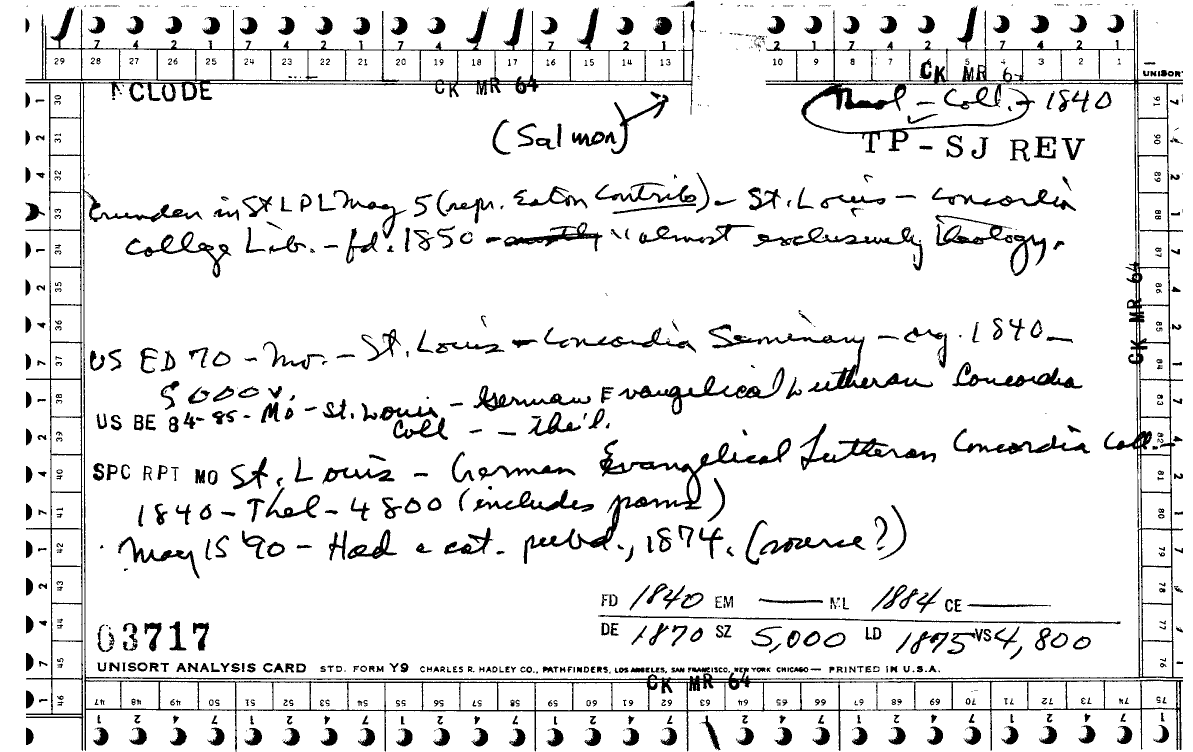 7 4 2 1 7 4 2 1 7 4 2 1 7 4 2 1 2 1 7 4 2 1 7 4 2 1
29 28 27 26 25 24 23 22 21 20 19 18 17 16 15 14 13 10 9 8 7 6 5 4 3 2 1 UNISORT
NCLUDE CK MR 64 CK MR 64
Theol - Coll. - 1840
(Salmon)
TP-SJ REV
Crunden in St LPL Mag 5 (repr. Eaton Contrib) - St. Louis - Concordia
College Lib. - fd. 1850 - mostly "almost exclusively theology.
US ED 70 - Mo. - St. Louis - Concordia Seminary - org. 1840 -
5000v.
US BE 84-85 - Mo - St. Louis - German Evangelical Lutheran Concordia
Coll - - the'l.
SPC RPT MO St. Louis - German Evangelical Lutheran Concordia Coll. -
1840 - Thel - 4800 (includes pams)
May 15 '90 - Had a cat. pubd., 1874. (source?)
FD 1840 EM — ML 1884 CE —
DE 1870 SZ 5,000 LD 1875 VS 4,800
03717
UNISORT ANALYSIS CARD STD. FORM Y9 CHARLES R. HADLEY CO., PATHFINDERS, LOS ANGELES, SAN FRANCISCO, NEW YORK CHICAGO — PRINTED IN U.S.A.
CK MR 64
CK MR 64
30 31 32 33 34 35 36 37 38 39 40 41 42 43 44 45 46
91 90 89 88 87 86 85 84 83 82 81 80 79 78 77 76 75
47 48 49 50 51 52 53 54 55 56 57 58 59 60 61 62 63 64 65 66 67 68 69 70 71 72 73 74 75